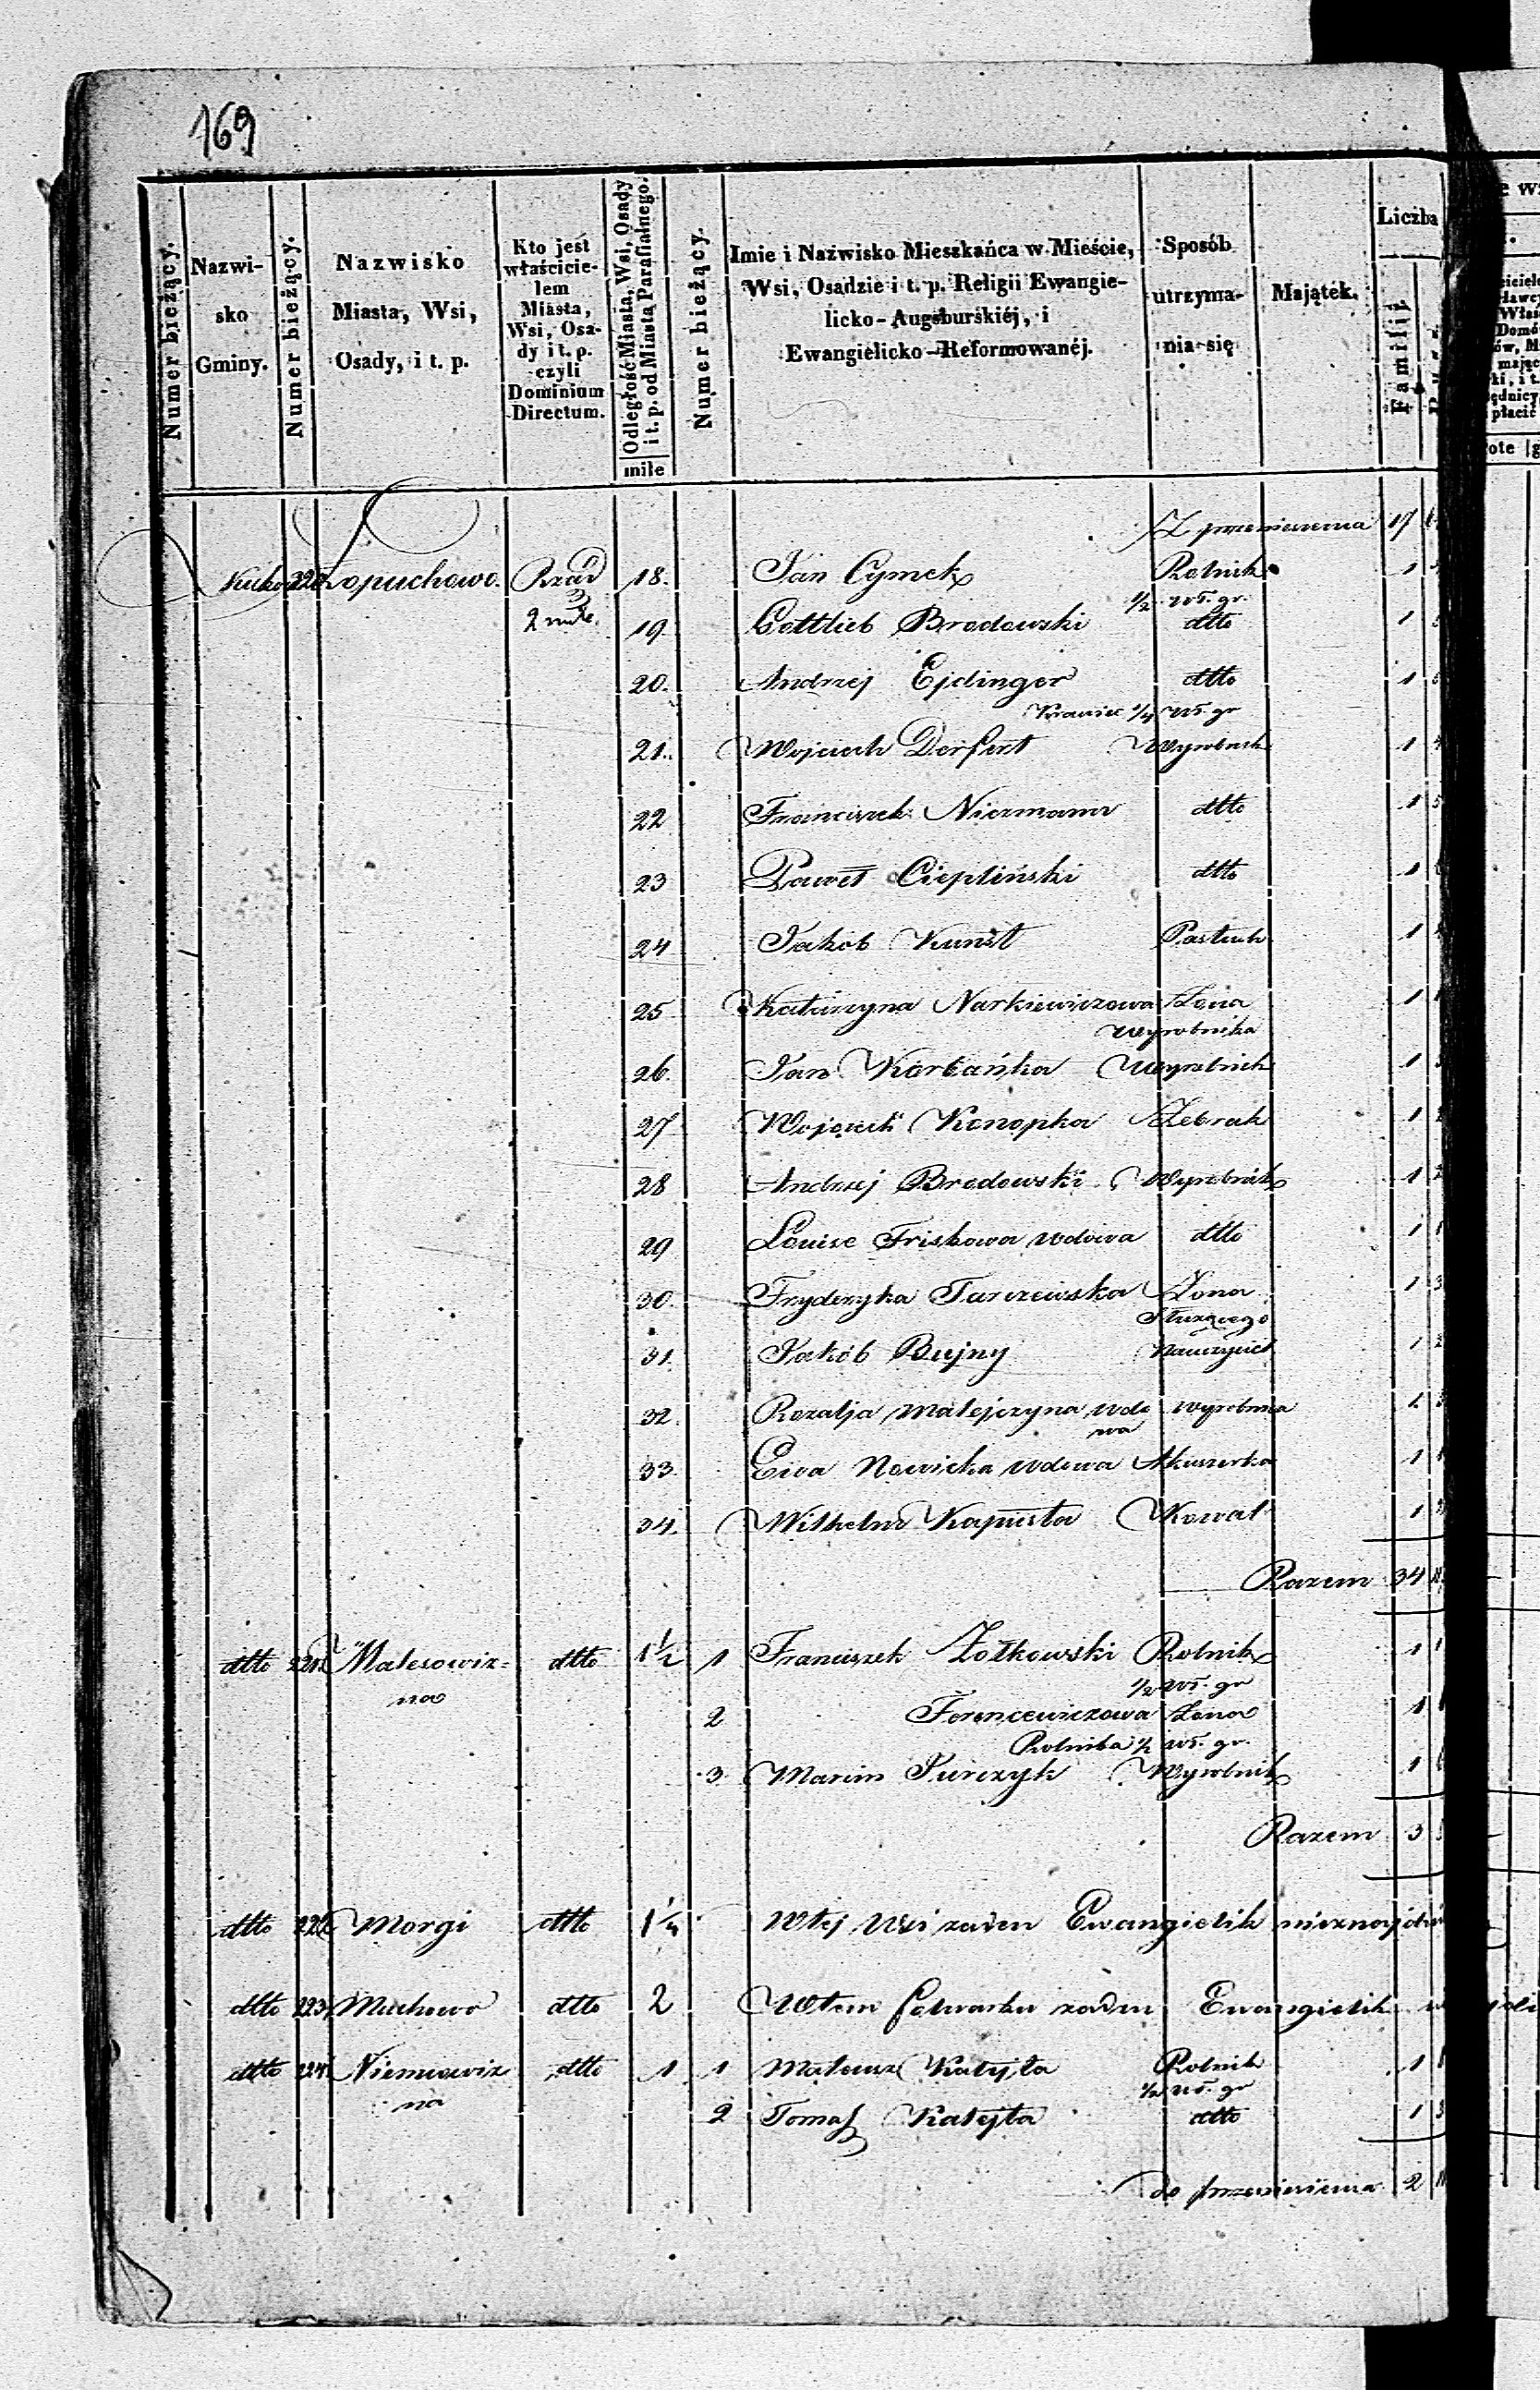 169
Numer bieżący.
Nazwi-
sko
Gminy.
Numer bieżący.
Nazwisko
Miasta, Wsi,
Osady, i t. p.
Kto jest
właścicie-
lem
Miasta,
Wsi, Osa-
dy i t. p.
czyli
Dominium
Directum.
Odległość Miasta, Wsi, Osady
i t. p. od Miasta Parafialnego.
mile
Numer bieżący.
Imie i Nazwisko Mieszkańca w Mieście,
Wsi, Osadzie i t. p. Religii Ewangie-
licko-Augsburskiéj, i
Ewangielicko-Reformowanéj.
Sposób
utrzyma-
nia się
Majątek.
Liczba
Familij
Z przeniesienia 17
Łopuchowo. Rząd 18. Jan Cymek Rolnik 1
½ wł. gr.
2 mile. 19. Gottlieb Brodowski dtto 1
20. Andrzej Ejdinger dtto 1
Krawiec ¼ wł. gr
21. Wojciech Derfert Wyrobnik 1
22 Franciszek Niermann dtto 1
23 Paweł Ciepliński dtto 1
24 Jakób Kunst Pastuch 1
25 Katarzyna Narkiewiczowa Żona 1
Wyrobnika
26. Jan Karbańka Wyrobnik 1
27 Wojciech Konopka Żebrak 1
28 Andrzej Brodowski Wyrobnik 1
29 Louise Friskowa wdowa dtto 1
30. Fryderyka Turczewska Żona 1
Służącego
31. Jakób Bujny Nauczyciel 1
32. Rozalja Matejczyna wdo wyrobnica 1
wa
33. Ewa Nowicka wdowa Akuszerka 1
34. Wilhelm Kapusta Kowal 1
Razem 34
dtto 221 Malesowiz= dtto 1½ 1 Franciszek Żołkowski Rolnik 1
na
½ wł. gr
2 Ferencewiczowa Żona 1
Rolnika ½ wł. gr.
3 Marcin Jurczyk Wyrobnik 1
Razem 3
dtto 222 Morgi dtto 1¼ W tej Wsi żaden Ewangielik nieznajdu
dtto 223 Muchowo dtto 2 W tem folwarku żaden Ewangielik
dtto 224 Niemcowiz dtto 1 1 Mateusz Katejta Rolnik 1
na
½ wł. gr
2 Tomasz Katejta dtto 1
do przeniesienia 2